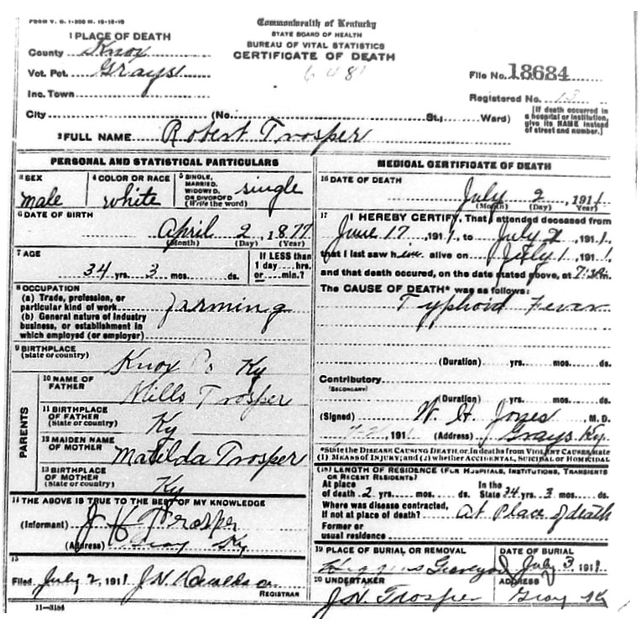 FORM V. S. 1-200 M. 12-12-10
Commonwealth of Kentucky
STATE BOARD OF HEALTH
BUREAU OF VITAL STATISTICS
CERTIFICATE OF DEATH
1 PLACE OF DEATH
County Knox
Vot. Pct. Grays
Inc. Town
City (No. St., Ward)
File No. 18684
Registered No. 13
(If death occurred in a hospital or institution, give its NAME instead of street and number.)
2 FULL NAME Robert Trosper
PERSONAL AND STATISTICAL PARTICULARS
3 SEX
male
4 COLOR OR RACE
white
5 SINGLE, MARRIED, WIDOWED, OR DIVORCED (Write the word)
single
6 DATE OF BIRTH
April 2, 1877
(Month) (Day) (Year)
7 AGE
34 yrs. 3 mos. ds.
If LESS than 1 day....hrs. or....min.?
8 OCCUPATION
(a) Trade, profession, or particular kind of work farming
(b) General nature of industry business, or establishment in which employed (or employer)
9 BIRTHPLACE (State or country)
Knox Co Ky
PARENTS
10 NAME OF FATHER Mills Trosper
11 BIRTHPLACE OF FATHER (State or country) Ky
12 MAIDEN NAME OF MOTHER Matilda Trosper
13 BIRTHPLACE OF MOTHER (State or country) Ky
14 THE ABOVE IS TRUE TO THE BEST OF MY KNOWLEDGE
(Informant) J H Trosper
(Address) Gray Ky
15
Filed July 2, 1911 J N
REGISTRAR
11—3184
MEDICAL CERTIFICATE OF DEATH
16 DATE OF DEATH
July 2, 1911
(Month) (Day) (Year)
17 I HEREBY CERTIFY, That I attended deceased from
June 17, 1911, to July 2, 1911,
that I last saw him alive on July 1, 1911,
and that death occured, on the date stated above, at 7:30 m.
The CAUSE OF DEATH* was as follows:
Typhoid Fever
(Duration) yrs. mos. ds.
Contributory
(SECONDARY)
(Duration) yrs. mos. ds.
(Signed) W. H. Jones M. D.
7-2, 1911 (Address) Grays Ky.
*State the DISEASE CAUSING DEATH, or, in deaths from VIOLENT CAUSES, state (1) MEANS OF INJURY; and (2) whether ACCIDENTAL, SUICIDAL or HOMICIDAL
18 LENGTH OF RESIDENCE (FOR HOSPITALS, INSTITUTIONS, TRANSIENTS OR RECENT RESIDENTS)
At place of death 2 yrs. mos. ds. In the State 34 yrs. 3 mos. ds.
Where was disease contracted, if not at place of death? At Place of death
Former or usual residence
19 PLACE OF BURIAL OR REMOVAL
Higgins Graveyard
DATE OF BURIAL
July 3, 1911
20 UNDERTAKER
J H Trosper
ADDRESS
Gray Ky